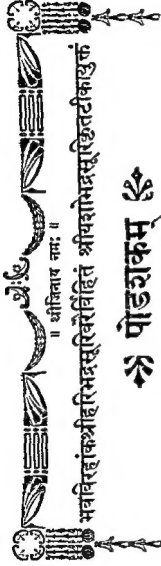 ॥ श्रीजिनाय नमः ॥
भवविरहांकश्रीहरिभद्रसूरिवरैर्विहितं श्रीयशोभद्रसूरिकृतटीकायुक्तं
षोडशकम्